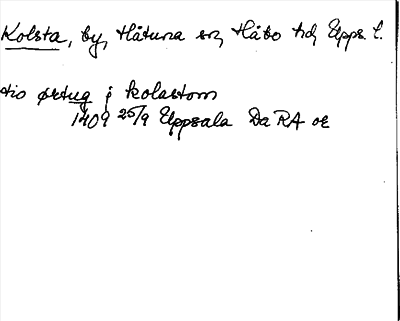 Kolsta, by, Håtuna sn, Håbo hd, Upps. l.
tio ørtug i kolastom
1409 25/9 Uppsala Da RA or